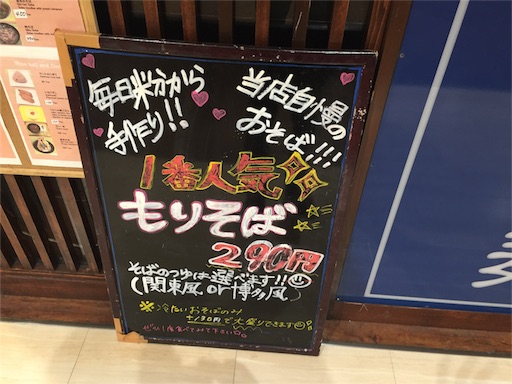 毎日粉から
手作り!!
当店自慢の
おそば!!!
1番人気
もりそば
290円
そばのつゆは選べます!!
(関東風 or 博多風)
※冷たいおそばのみ
+130円で大盛りできます
ぜひ1度食べてみて下さい